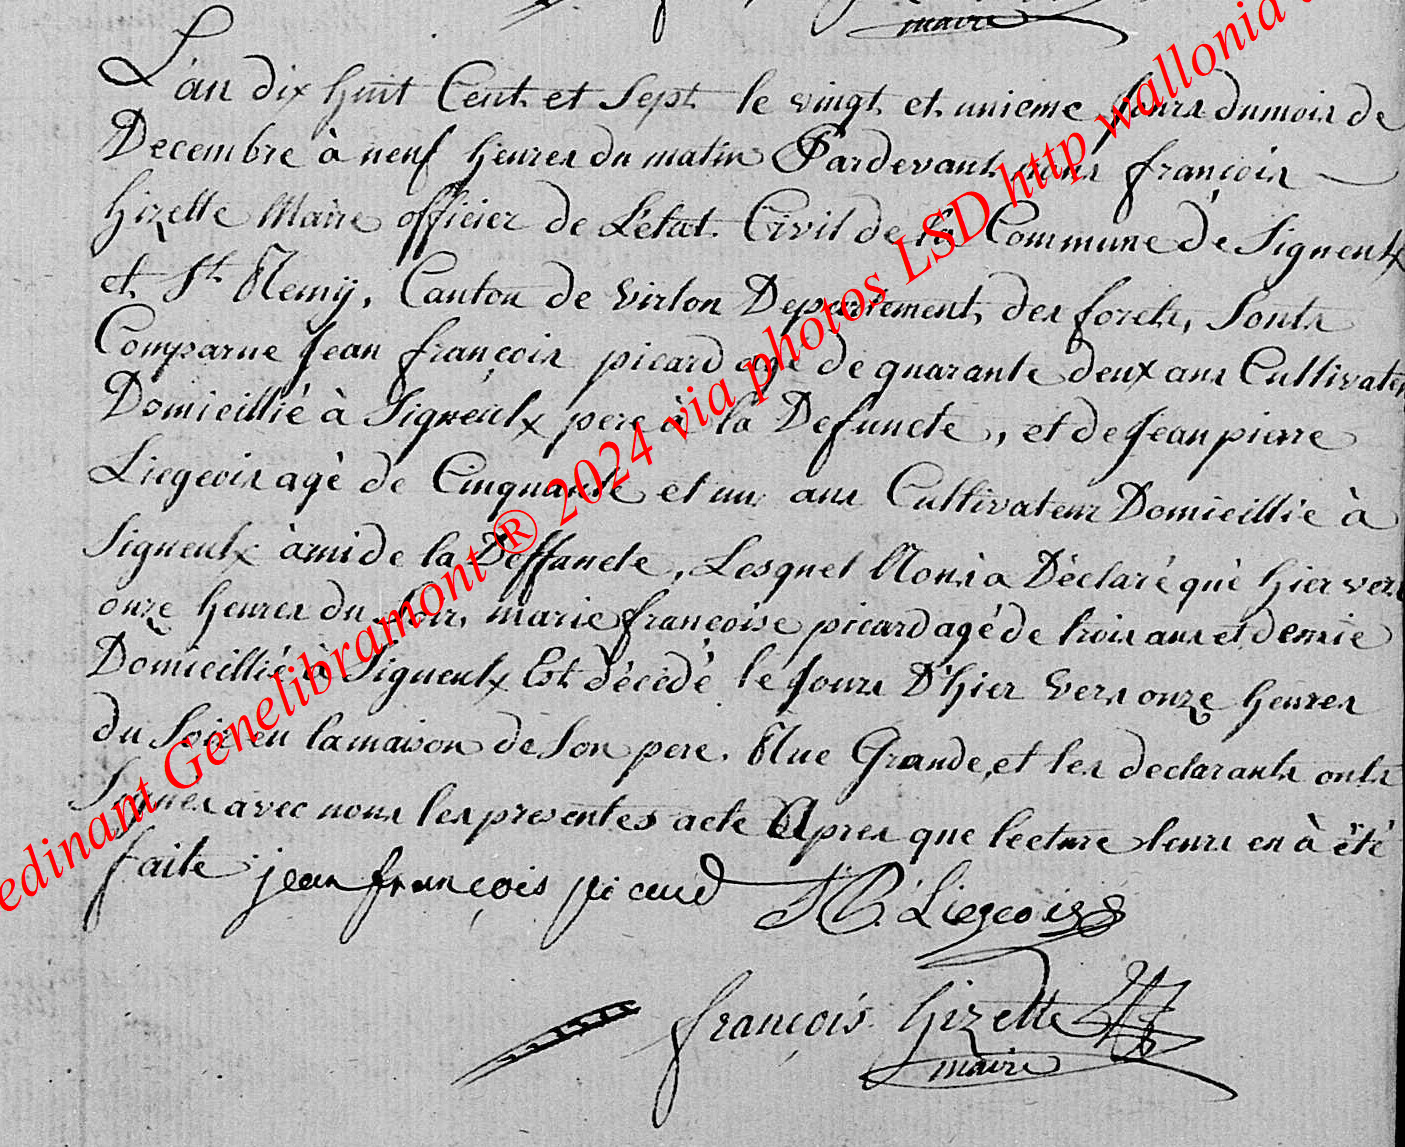 maire
L'an dix huit Cent et Sept le vingt et unieme Jours du mois de
Decembre à neuf heures du matin Pardevant nous françois
hizette Maire officier de L'état Civil de la Commune de Signeulx
et St Remÿ, Canton de virton Departement des forets, Sonts
Comparue Jean françois picard agé de quarante deux ans Cultivateur
Domicillié à Signeulx pere à la Defuncte, et de Jean pierre
Liegeois agè de Cinquante et un ans Cultivateur Domicillie à
Signeulx àmi de la Deffuncte, Lesquel Nous a Déclaré què hier vers
onze heures du Soir, marie françoise picard agé de trois ans et demie
Domicillié à Signeulx Est décedé le Jours D'hier vers onze heures
du Soir en la maison de Son pere, Rue Grande, et les declarants onts
Signes avec nous les presentes acte Apres que lecture leurs en à ëté
faite jean françois picard J P. Liegeois
françois hizette
maire
edinant Genelibramont ® 2024 via photos LSD http wallonia